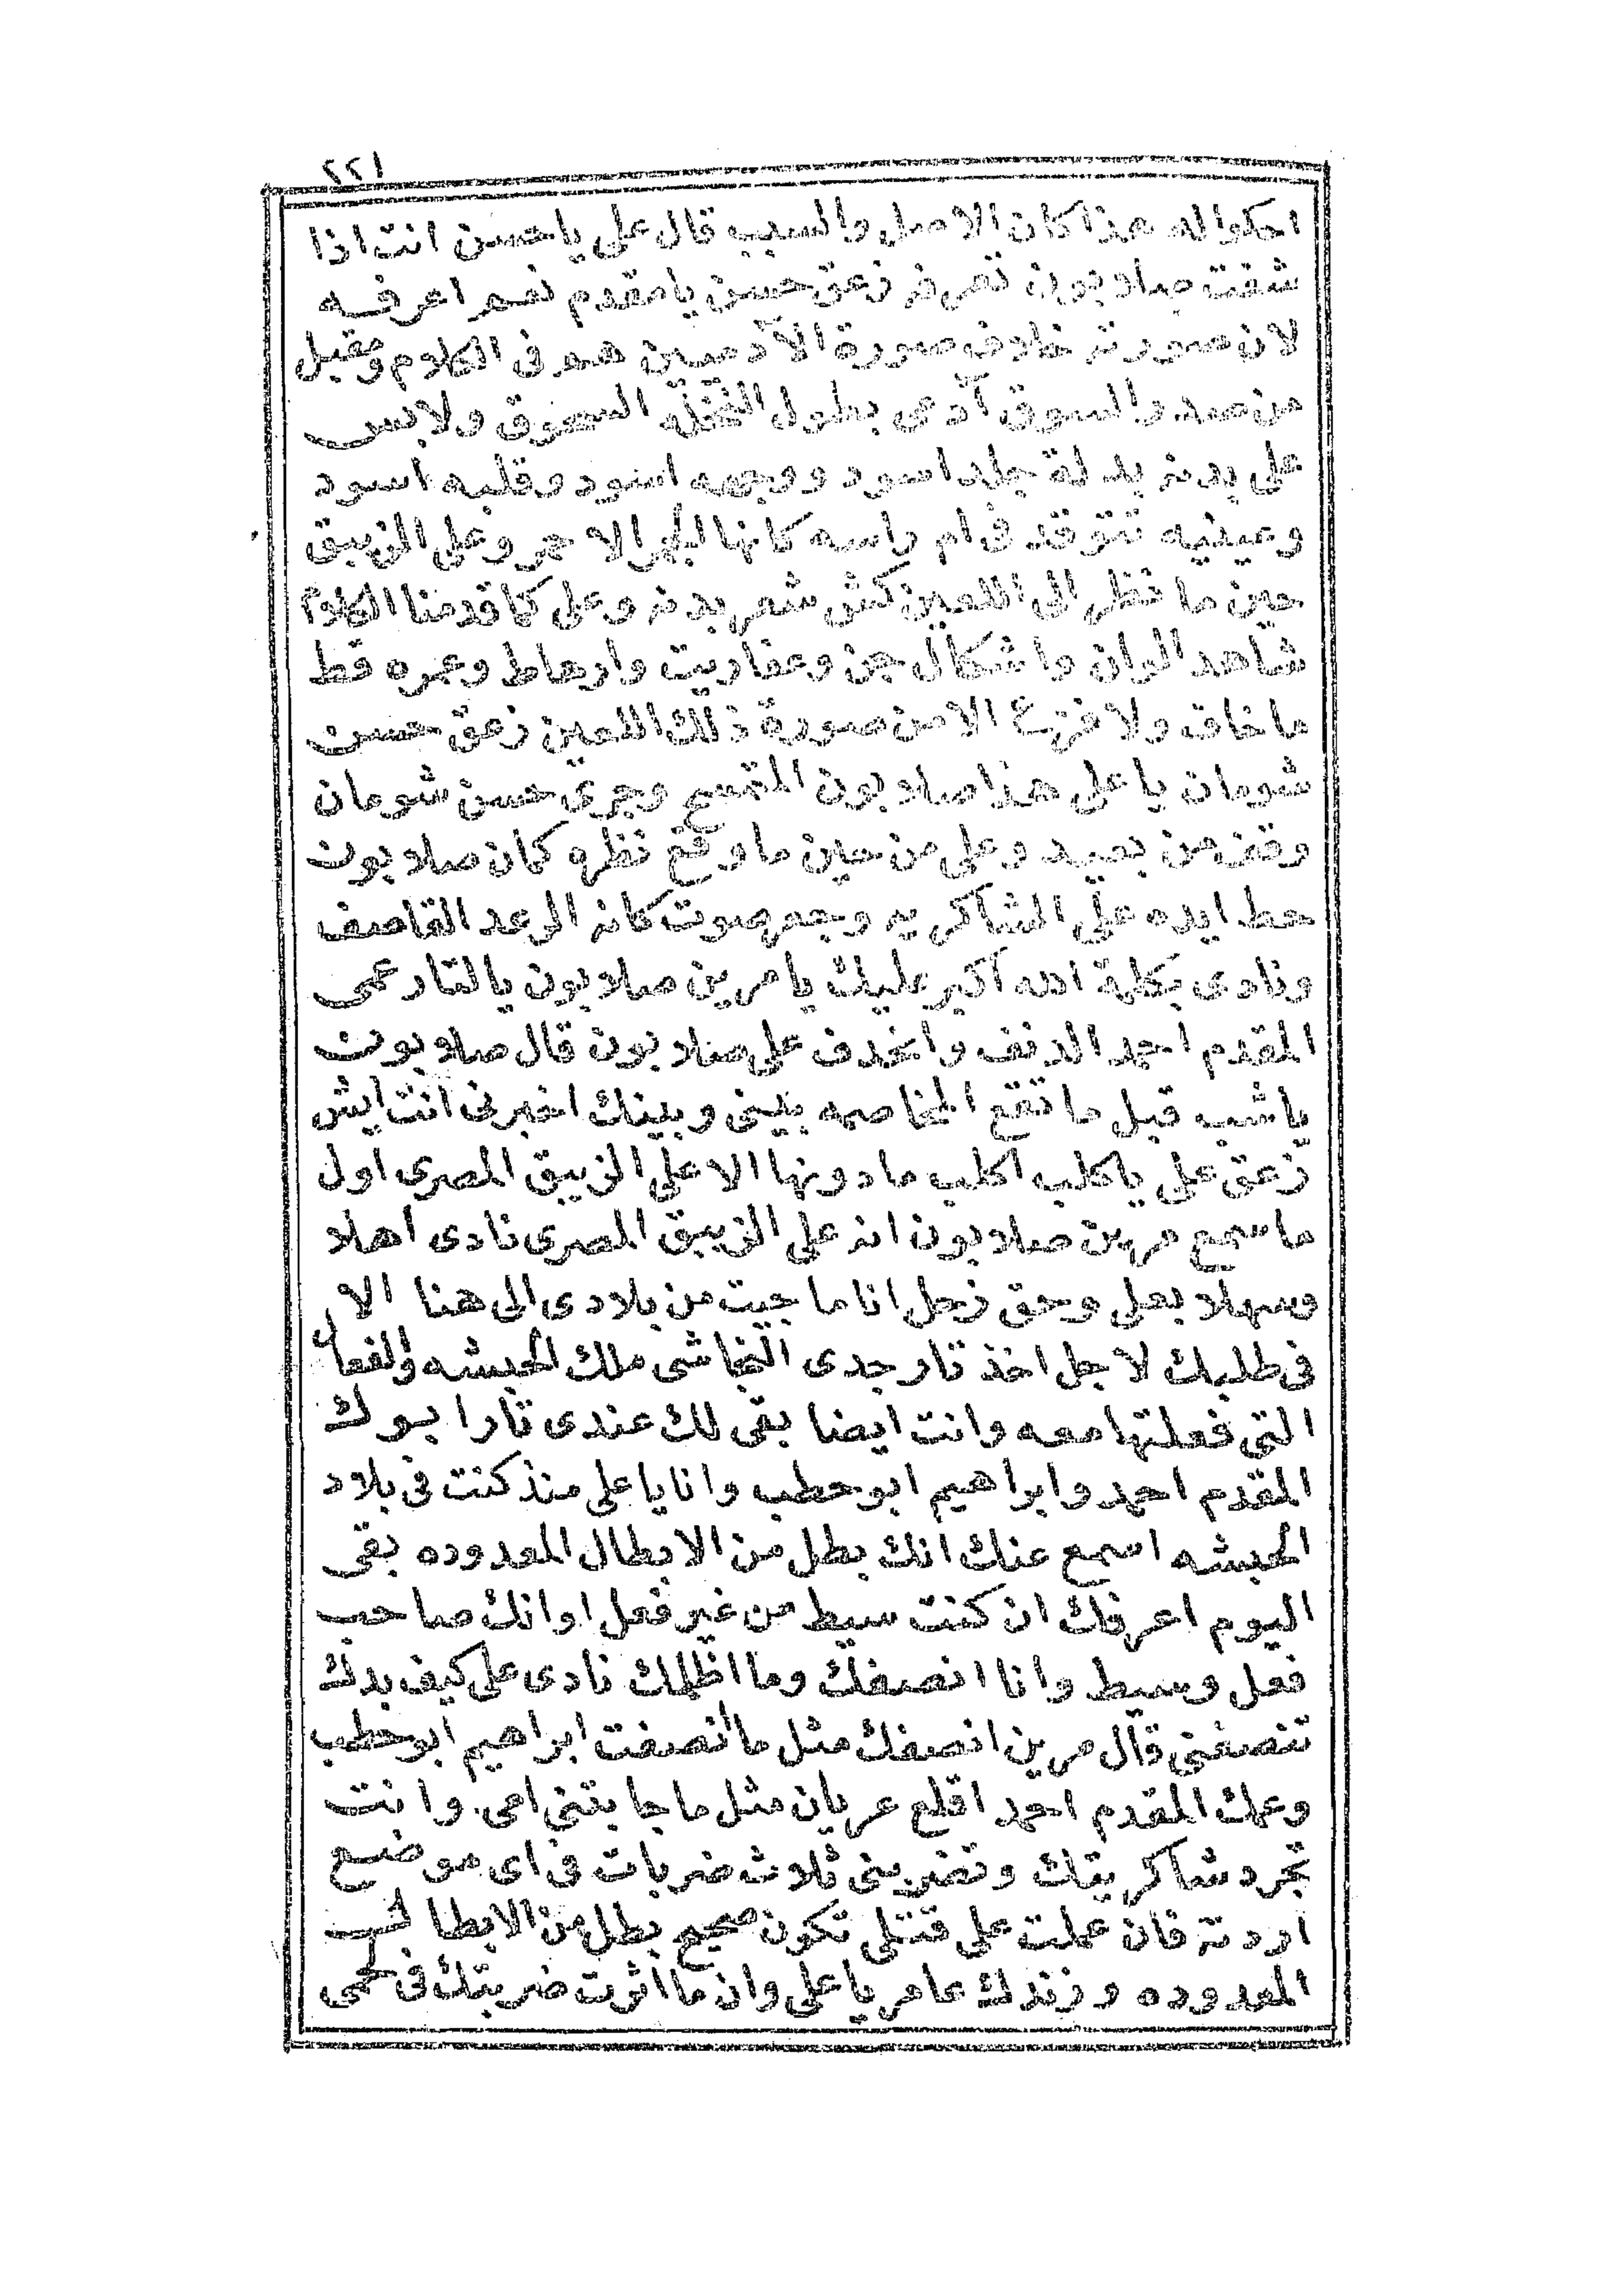 ٢٢١
احكوا له هذا كان الاصل والسبب قال على يا حسن انت اذا
شفت صلادبون تعرفه زعق حسن يا مقدم نعم اعرفه
لان صورته خلاف صورة الآدميين هم فى الكلام ومقبل
من صدر السوق آدمى بطول النخله السحوق ولابس
على بدنه بدلة جلد اسود ووجهه اسود وقلبه اسود
وعينيه تتوقد فى ام راسه كانها الجمر الاحمر وعلى الزيبق
حين ما نظر الى اللعين كش شعر بدنه وعلى كما قدمنا الكلام
شاهد الوان واشكال جن وعفاريت وارهاط وعمره قط
ما خاف ولا فزع الا من صورة ذلك اللعين زعق حسن
شومان يا على هذا صلادبون وجرى حسن شومان
وقف من بعيد وعلى من حين ما وقع نظره كان صلادبون
حط ايده على الشاكريه وجعر بصوت كانه الرعد القاصف
ونادى بكلمة الله اكبر عليك يا مرين صلادبون يا لتار عمى
المقدم احمد الدنف وانحدف على صلادبون قال صلادبون
يا شب قبل ما تقع المخاصمه بينى وبينك اخبرنى انت ايش
زعق على يا كلب اكلب ما دونها الا على الزيبق المصرى اول
ما سمع مرين صلادبون انه على الزيبق المصرى نادى اهلا
وسهلا بعلى وحق زحل انا ما جيت من بلادى الى هنا الا
فى طلبك لاجل اخذ تار جدى النجاشى ملك الحبشه والفعال
التى فعلتها معه وانت ايضا بقى لك عندى تار ابوك
المقدم احمد وابراهيم ابو حطب وانا يا على منذ كنت فى بلاد
الحبشه اسمع عنك انك بطل من الابطال المعدوده بقى
اليوم اعرفك ان كنت سيط من غير فعل او انك صاحب
فعل وسيط وانا انصفك وما اظلمك نادى على كيف بدك
تنصفنى قال مرين انصفك مثل ما انصفت ابراهيم ابو حطب
وعمك المقدم احمد اقلع عريان مثل ما جابتنى امى وانت
تجرد شاكريتك وتضربنى ثلاث ضربات فى اى موضع
اردته فان عملت على قتلى تكون صحيح بطل من الابطال
المعدوده وزندك عامر يا على وان ما اثرت ضربتك فى لحمى